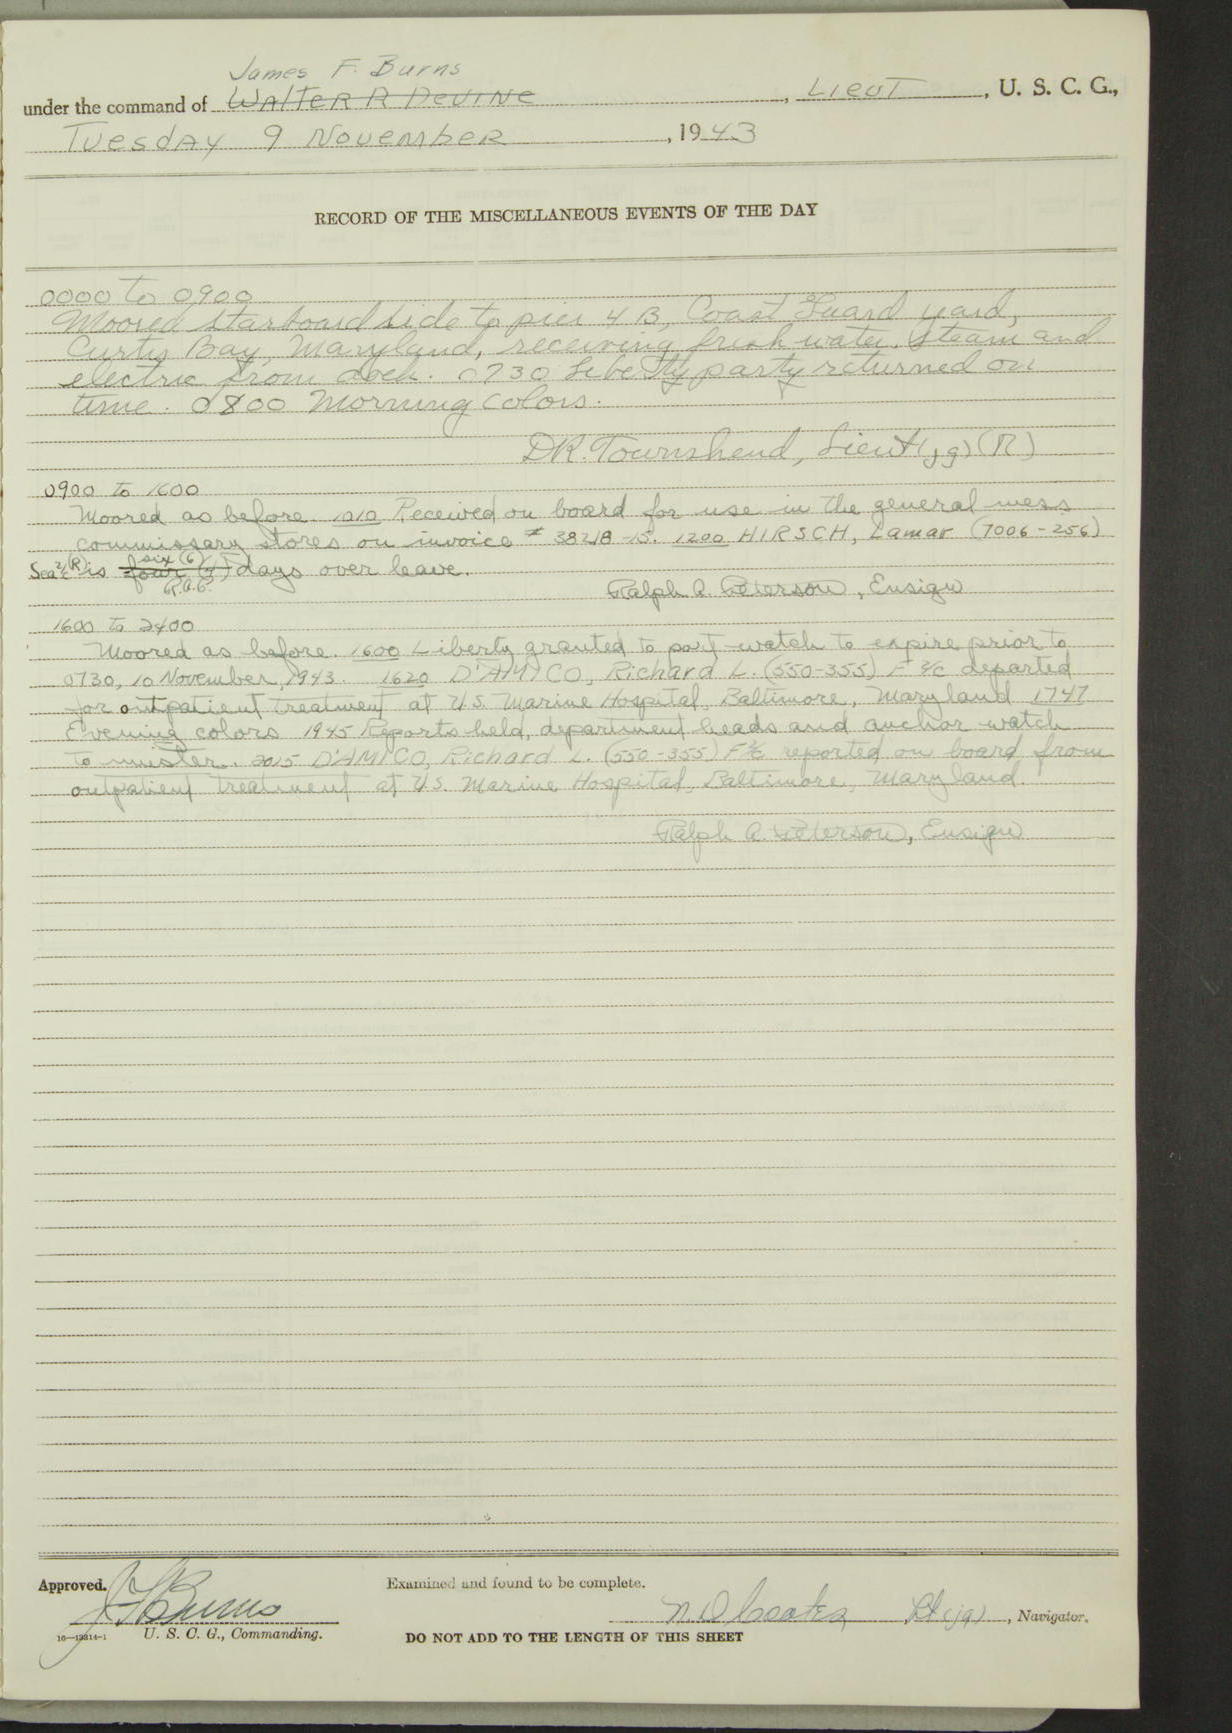 James F. Burns
under the command of Walter R Devine, Lieut, U. S. C. G.,
Tuesday 9 November, 1943
RECORD OF THE MISCELLANEOUS EVENTS OF THE DAY
0000 to 0900
Moored starboard side to pier 4 B, Coast Guard yard,
Curtis Bay, Maryland, receiving fresh water, steam and
electric from dock. 0730 Liberty party returned on
time. 0800 Morning colors.
D.R. Townshend, Lieut (jg) (R)
0900 to 1600
Moored as before. 1010 Received on board for use in the general mess
commissary stores on invoice # 38218-15. 1200 HIRSCH, Lamar (7006-256)
six (6)
Sea 2/c (R) is four (4) days over leave.
R.A.P.
Ralph A. Peterson, Ensign
1600 to 2400
Moored as before. 1600 Liberty granted to port watch to expire prior to
0730, 10 November, 1943. 1620 D'AMICO, Richard L. (550-355) F 2/c departed
for outpatient treatment at U.S. Marine Hospital, Baltimore, Maryland 1747
Evening colors 1945 Reports held, department heads and anchor watch
to muster. 2015 D'AMICO, Richard L. (550-355) F 2/c reported on board from
outpatient treatment at U.S. Marine Hospital, Baltimore, Maryland.
Ralph A. Peterson, Ensign
Approved.
Examined and found to be complete.
J F Burns
Lt (jg), Navigator.
16—13814-1 U. S. C. G., Commanding.
DO NOT ADD TO THE LENGTH OF THIS SHEET